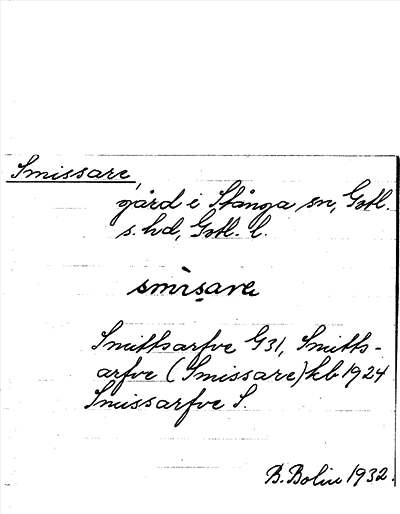 Smissare,
gård i Stånga sn, Gotl.
s. hd, Gotl. l.
smìs̹are
Smittsarfve G31, Smitts-
arfve (Smissare) kb 1924
Smissarfve S.
B. Bolin 1932.